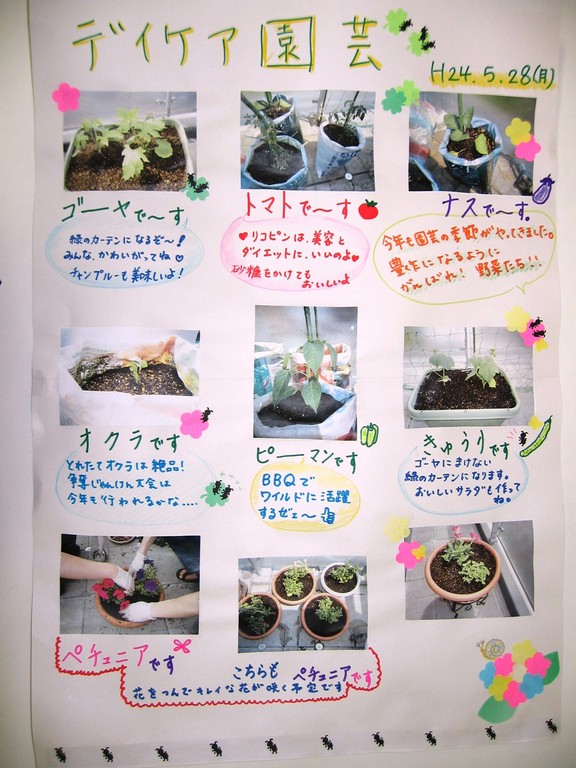 デイケア園芸
H24.5.28(月)
ゴーヤで〜す
緑のカーテンになるぞ〜!
みんな、かわいがってね♡
チャンプルーも美味しいよ!
トマトで〜す
♥リコピンは、美容と
ダイエットに、いいのよ♥
砂糖をかけても
おいしいよ
ナスで〜す。
今年も園芸の季節がやってきました。
豊作になるように
がんばれ! 野菜たち!!
オクラです
とれたてオクラは絶品!
争奪じゃんけん大会は
今年も行われるかな....
ピーマンです
BBQで
ワイルドに活躍
するぜェ〜
きゅうりです
ゴーヤにまけない
緑のカーテンになります。
おいしいサラダも作って
ね。
ペチュニアです
こちらも ペチュニアです
花をつんでキレイな花が咲く予定です